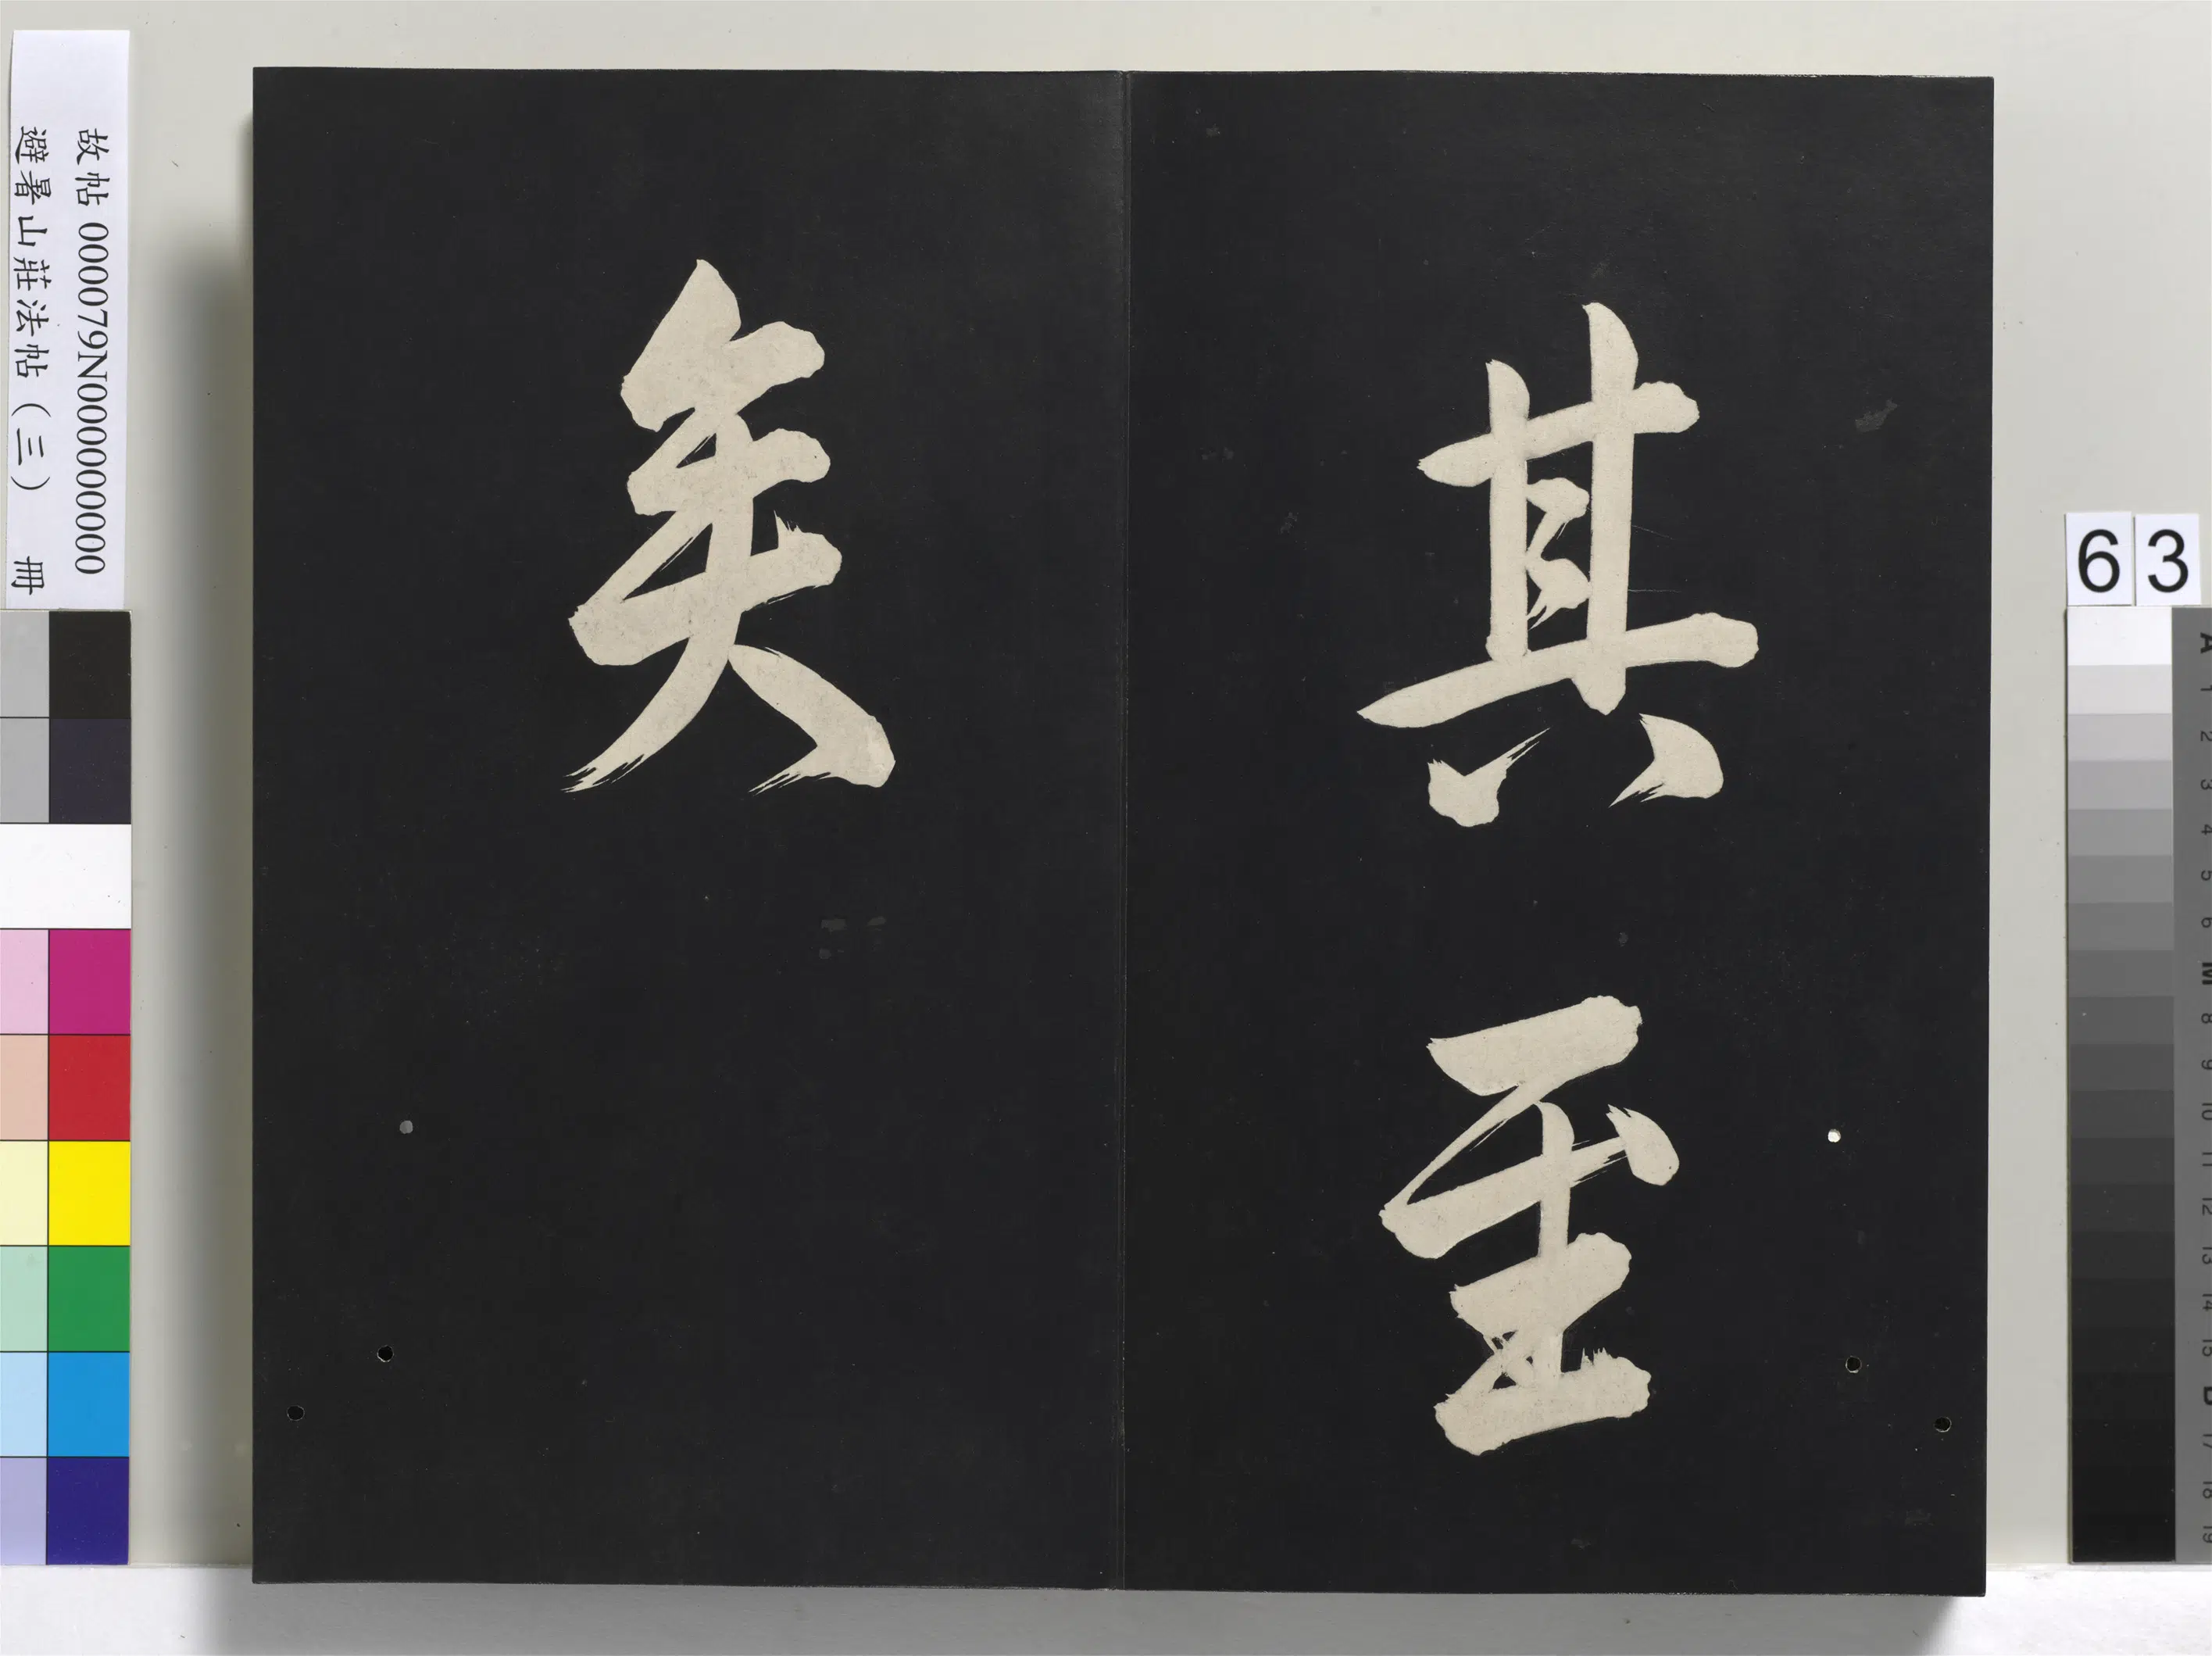 其至
矣
故帖 000079N000000000
避暑山莊法帖（三） 冊
63
A 1 2 3 4 5 6 M 8 9 10 11 12 13 14 15 B 17 18 19